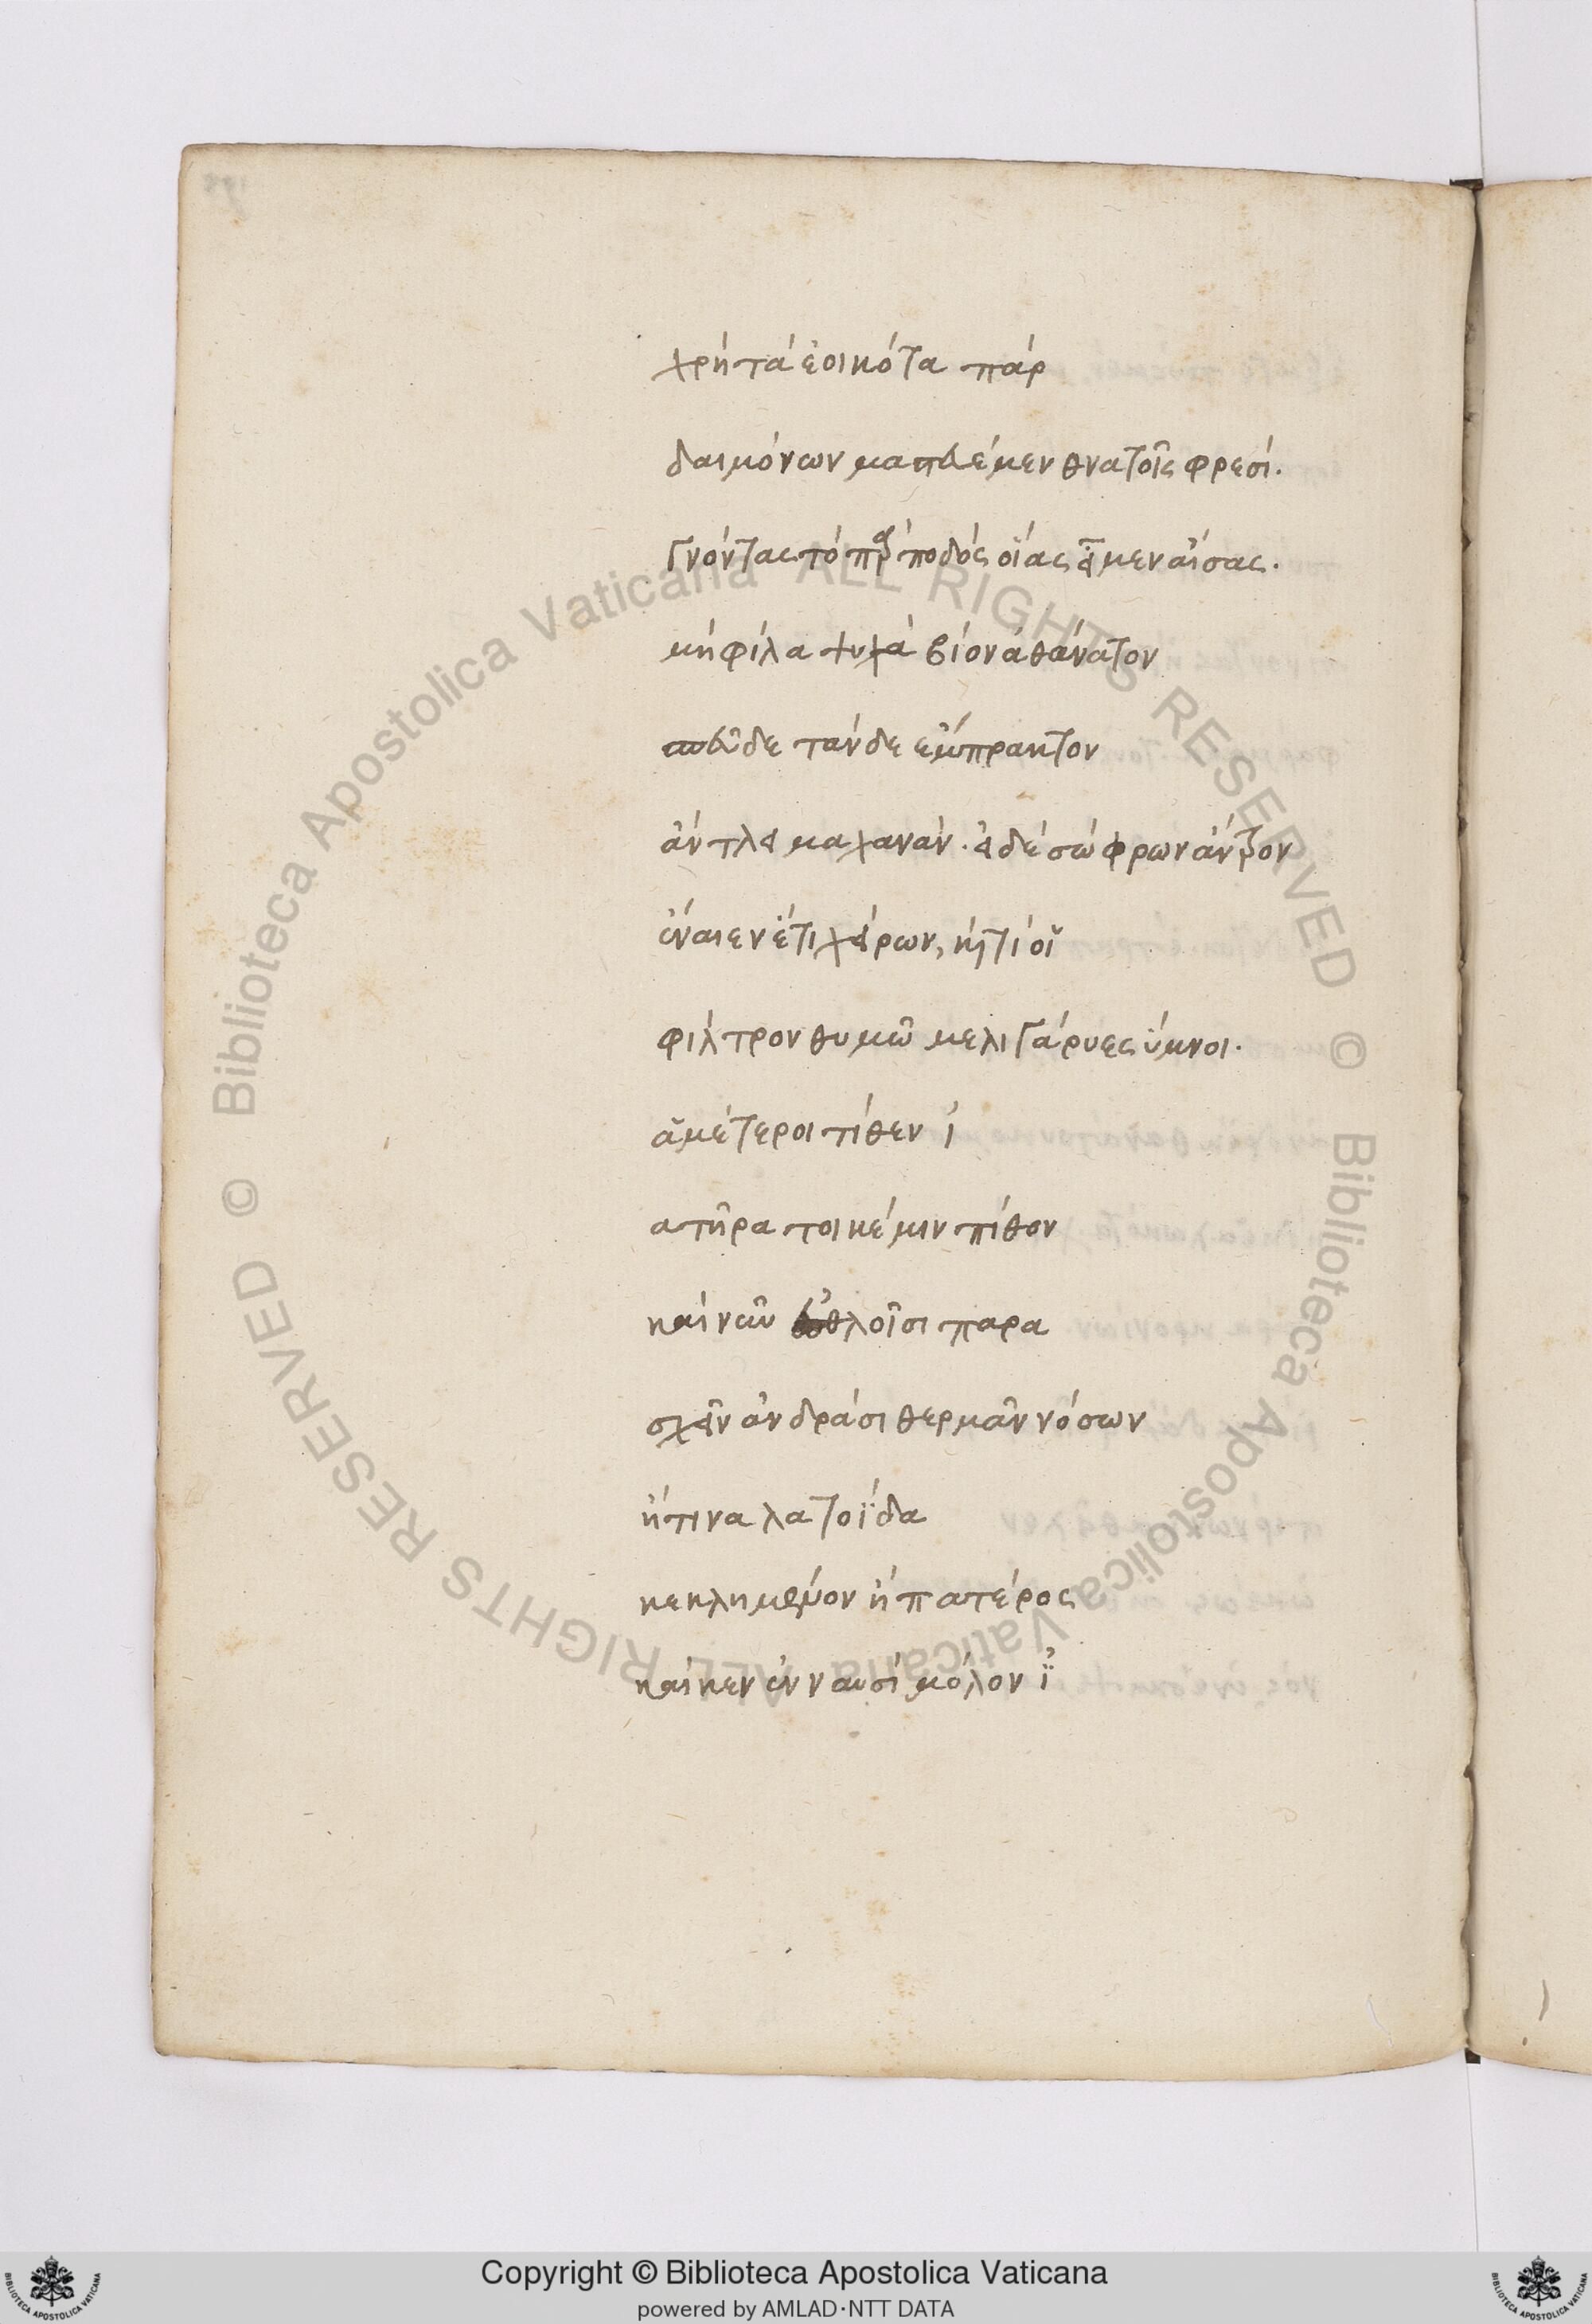 χρὴ τὰ ἐοικότα πὰρ
δαιμόνων μαστευέμεν θναταῖς φρεσί.
γνόντας τὸ πὰρ ποδὸς οἵας εἰμὲν αἴσας.
μὴ φίλα ψυχὰ βίον ἀθάνατον
σπεῦδε τὰν δ' ἔμπρακτον
ἄντλει μαχανάν. εἰ δὲ σώφρων ἄντρον
ἔναιεν ἔτι χείρων, καί τί οἱ
φίλτρον θυμῷ μελιγάρυες ὕμνοι.
ἁμέτεροι τίθεν ἰ
ατῆρα τοι κέ μιν πίθον
καὶ νῦν ἐσθλοῖσι παρα
σχεῖν ἀνδράσι θερμᾶν νόσων
ἤ τινα λατοΐδα
κεκλημένον ἢ πατέρος
καί κεν ἐν ναυσὶ μόλον ἰ
Copyright © Biblioteca Apostolica Vaticana
powered by AMLAD·NTT DATA
© Biblioteca Apostolica Vaticana ALL RIGHTS RESERVED © Biblioteca Apostolica Vaticana ALL RIGHTS RESERVED